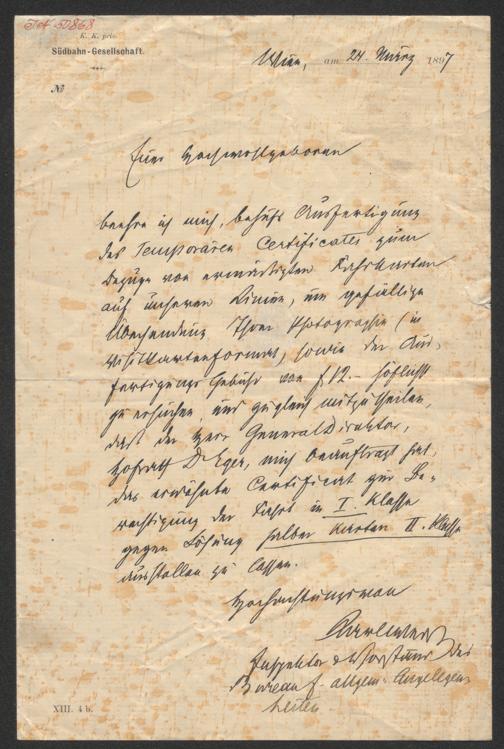 I.N. 50868
K. K. priv.
Südbahn-Gesellschaft.
Wien, am 24. März 1897
№
Euer Hochwohlgeboren
beehre ich mich, behufs Ausfertigung
des Temporären Certificates zum
Bezuge von ermässigten Fahrkarten
auf unseren Linien, um gefällige
Übersendung Ihrer Photographie (in
Visitkartenformat) sowie der Aus-
fertigungs Gebühr von f 12.- höflichst
zu ersuchen, und zugleich mitzutheilen,
dass der Herr General Direktor,
Hofrath Dr Eger, mich beauftragt hat,
das erwähnte Certificat zur Be-
rechtigung der Fahrt in I. Klasse
gegen Lösung halber Karten II. Klasse
ausstellen zu lassen.
Hochachtungsvoll
Inspektor & Vorstand des
Bureau f. allgem. Angelegen
heiten
XIII. 4 b.